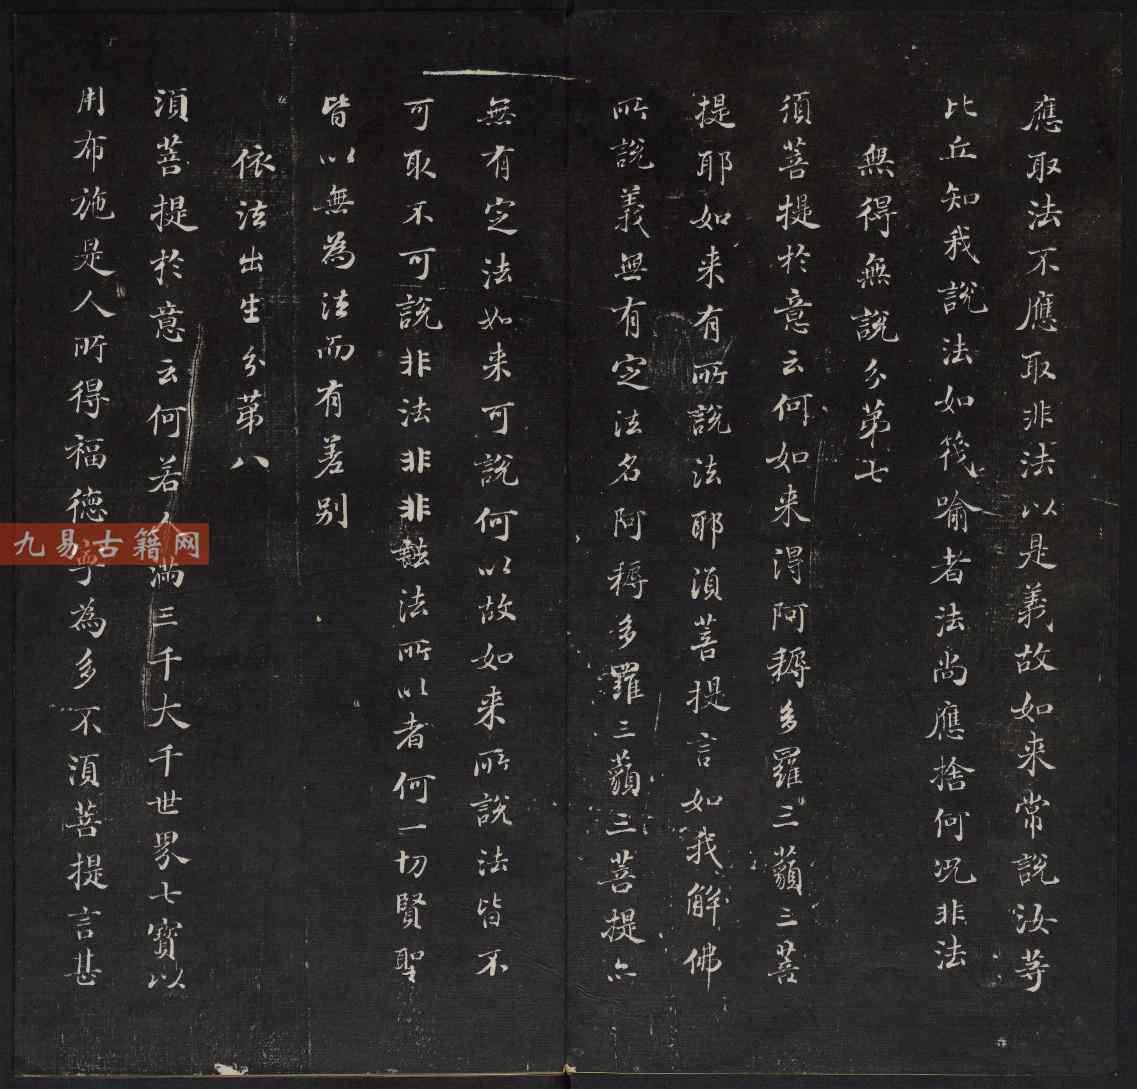 應取法不應取非法以是義故如来常說汝等
比丘知我說法如筏喻者法尚應捨何况非法
無得無說分第七
須菩提於意云何如来得阿耨多羅三藐三菩
提耶如来有所說法耶須菩提言如我解佛
所說義無有定法名阿耨多羅三藐三菩提亦
無有定法如来可說何以故如来所說法皆不
可取不可說非法非非法所以者何一切賢聖
皆以無為法而有差别
依法出生分第八
須菩提於意云何若人滿三千大千世界七寶以
用布施是人所得福德寧為多不須菩提言甚
九易古籍网